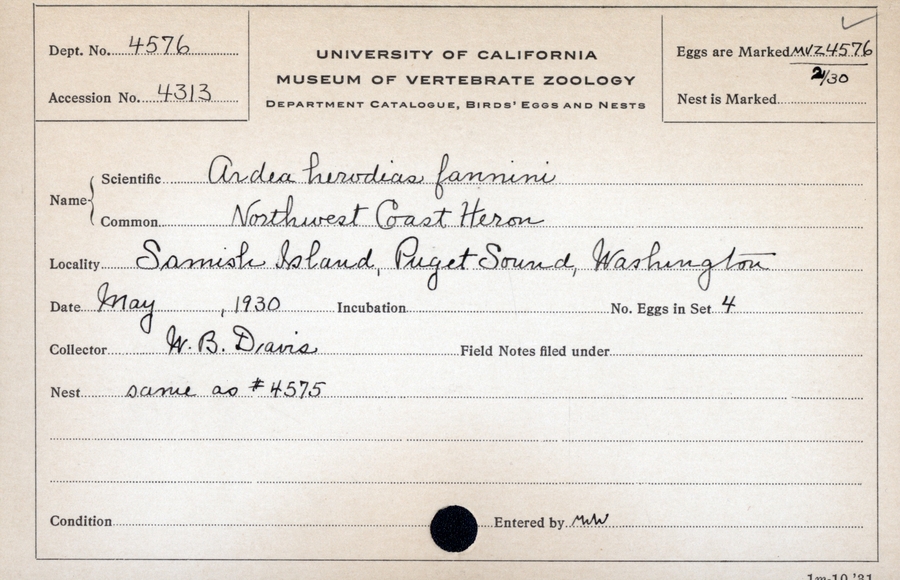 Dept. No. 4576
Accession No. 4313
UNIVERSITY OF CALIFORNIA
MUSEUM OF VERTEBRATE ZOOLOGY
DEPARTMENT CATALOGUE, BIRDS' EGGS AND NESTS
Eggs are Marked MVZ4576
2/30
Nest is Marked
Name
Scientific Ardea herodias fannini
Common Northwest Coast Heron
Locality Samish Island, Puget Sound, Washington
Date May , 1930 Incubation No. Eggs in Set 4
Collector W. B. Davis Field Notes filed under
Nest same as #4575
Condition Entered by
1m-10,'31